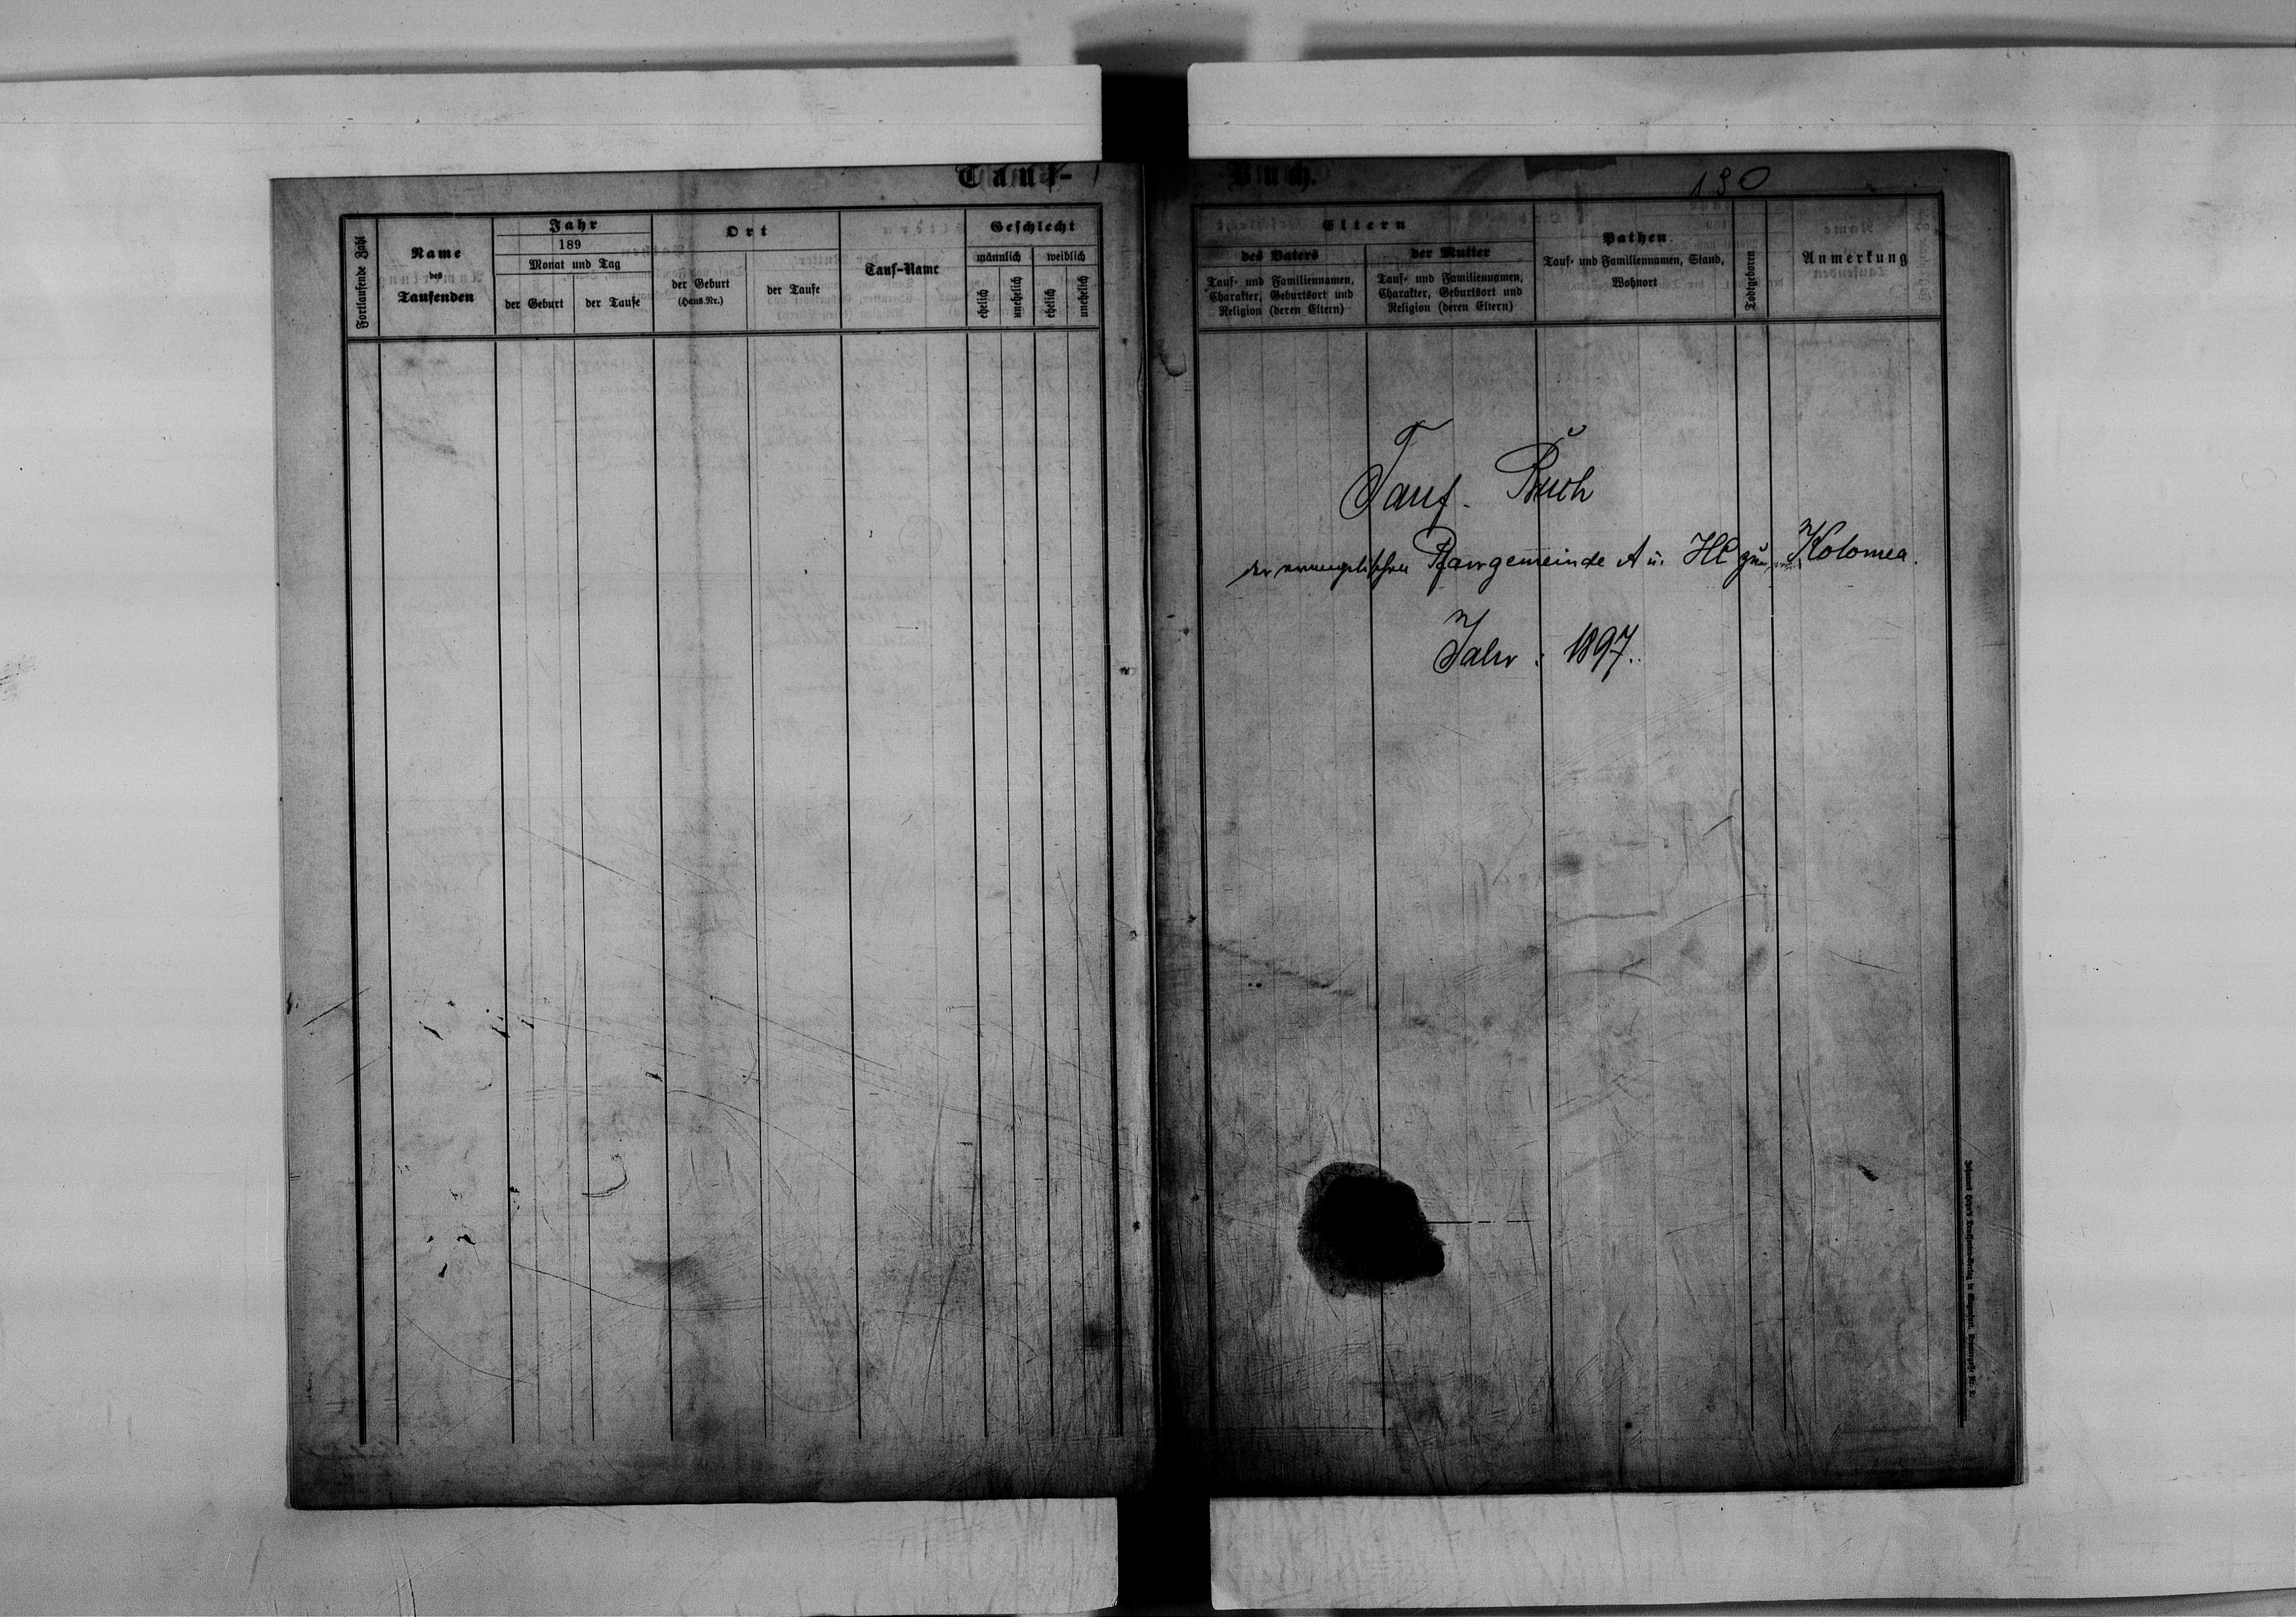 Tauf-
Buch.
190
Fortlaufende Zahl
Name
des
Taufenden
Jahr
189
Monat und Tag
der Geburt
der Taufe
Ort
der Geburt
(Haus.Nr.)
der Taufe
Tauf-Name
Geschlecht
männlich
weiblich
ehelich
unehelich
ehelich
unehelich
Eltern
des Vaters
Tauf- und Familiennamen,
Charakter, Geburtsort und
Religion (deren Eltern)
der Mutter
Tauf- und Familiennamen,
Charakter, Geburtsort und
Religion (deren Eltern)
Pathen
Tauf- und Familiennamen, Stand,
Wohnort
Todtgeboren
Anmerkung
Tauf- Buch
der evangelischen Pfarrgemeinde A u. HC zu Kolomea.
Jahr: 1897.